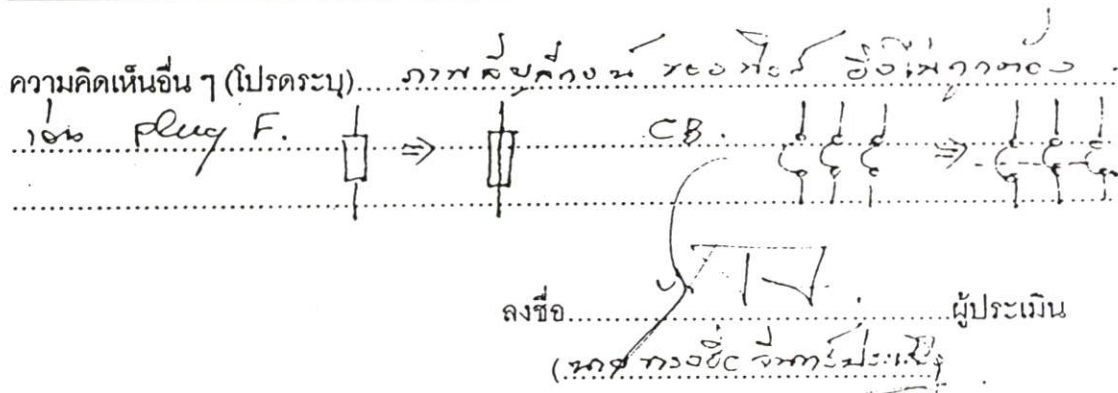 ความคิดเห็นอื่น ๆ (โปรดระบุ) ภาพสัญลักษณ์ ของฟิวส์ ยังไม่ถูกต้อง
เช่น plug F. ⇒ CB. ⇒
ลงชื่อ ผู้ประเมิน
(นาย